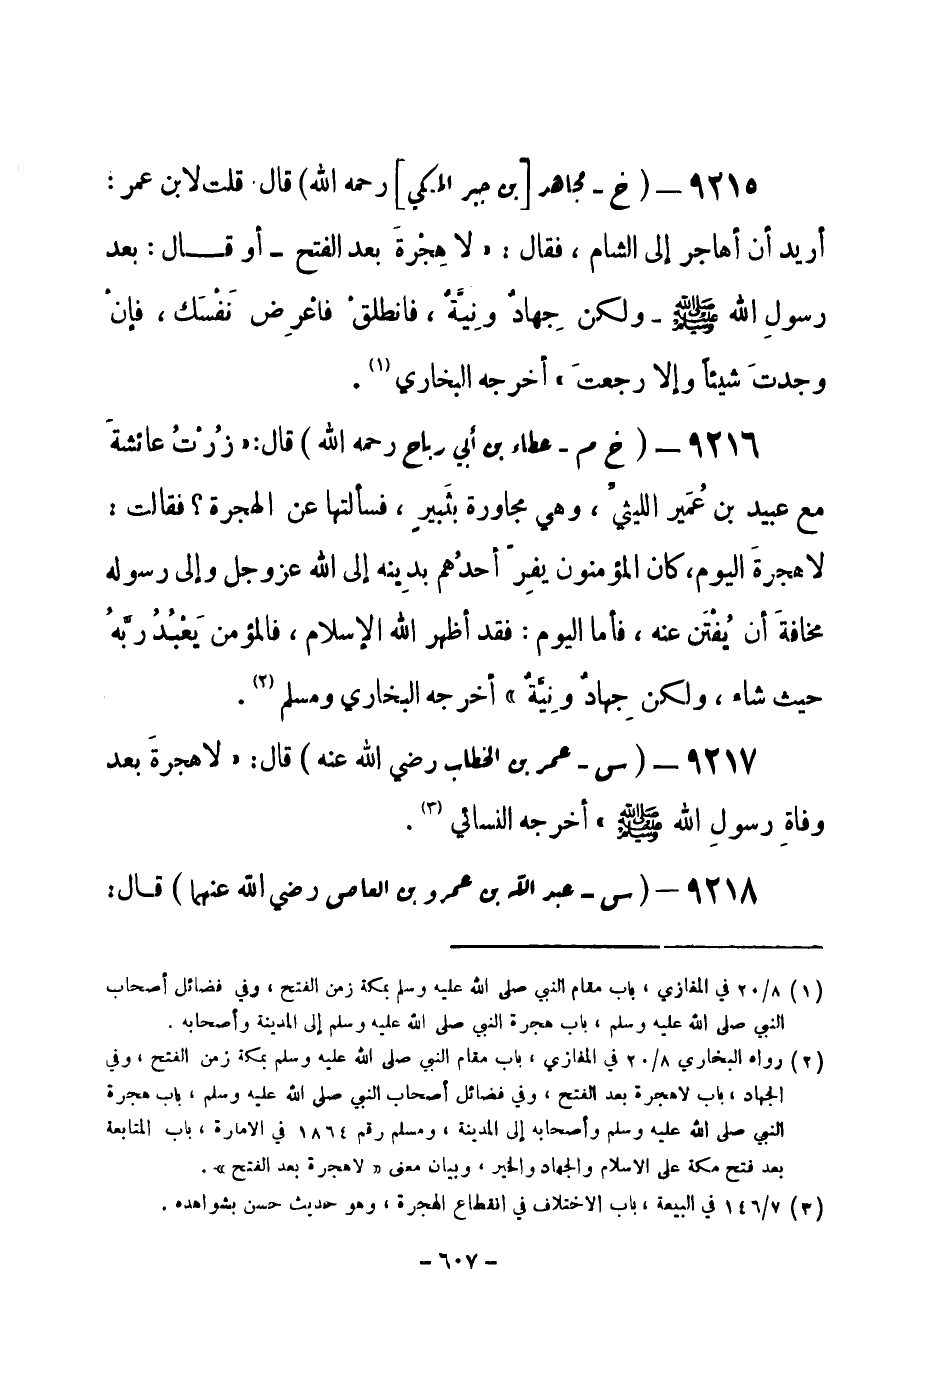 ٩٢١٥ – ( خ - مجاهد [ بن جبر المكي ] رحمه الله ) قال : قلت لابن عمر :
أريد أن أهاجر إلى الشام ، فقال : « لا هِجْرةَ بعد الفتح - أو قــال : بعد
رسولِ الله ﷺ - ولكن جِهادٌ ونِيَّةٌ ، فانطلقْ فاعْرِض نَفْسَك ، فإنْ
وجدتَ شيئاً وإلا رجعتَ » أخرجه البخاري (١) .
٩٢١٦ – ( خ م - عطاء بن أبي رباح رحمه الله ) قال : « زُرْتُ عائشةَ
مع عبيد بن عُمَير الليثيّ ، وهي مجاورة بثَبيرٍ ، فسألتها عن الهجرة ؟ فقالت :
لا هجرةَ اليوم ، كان المؤمنون يفِرّ أحدُهم بدِينه إلى الله عز وجل وإلى رسوله
مخافةَ أن يُفْتَن عنه ، فأما اليوم : فقد أظهر الله الإسلام ، فالمؤمن يَعْبُدُ ربَّهُ
حيث شاء ، ولكن جِهادٌ ونِيَّةٌ » أخرجه البخاري ومسلم (٢) .
٩٢١٧ – ( س - عمر بن الخطاب رضي الله عنه ) قال : « لا هجرةَ بعد
وفاةِ رسولِ الله ﷺ » أخرجه النسائي (٣) .
٩٢١٨ – ( س - عبد الله بن عمرو بن العاصي رضي الله عنهما ) قــال :
(١) ٢٠/٨ في المغازي ، باب مقام النبي صلى الله عليه وسلم بمكة زمن الفتح ، وفي فضائل أصحاب
النبي صلى الله عليه وسلم ، باب هجرة النبي صلى الله عليه وسلم إلى المدينة وأصحابه .
(٢) رواه البخاري ٢٠/٨ في المغازي ، باب مقام النبي صلى الله عليه وسلم بمكة زمن الفتح ، وفي
الجهاد ، باب لاهجرة بعد الفتح ، وفي فضائل أصحاب النبي صلى الله عليه وسلم ، باب هجرة
النبي صلى الله عليه وسلم وأصحابه إلى المدينة ، ومسلم رقم ١٨٦٤ في الامارة ، باب المتابعة
بعد فتح مكة على الاسلام والجهاد والخير ، وبيان معنى « لاهجرة بعد الفتح » .
(٣) ١٤٦/٧ في البيعة ، باب الاختلاف في انقطاع الهجرة ، وهو حديث حسن بشواهده .
- ٦٠٧ -